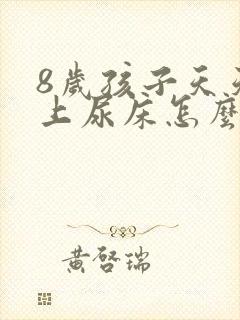 8歲孩子天天
上尿床怎麼
黃啓瑞